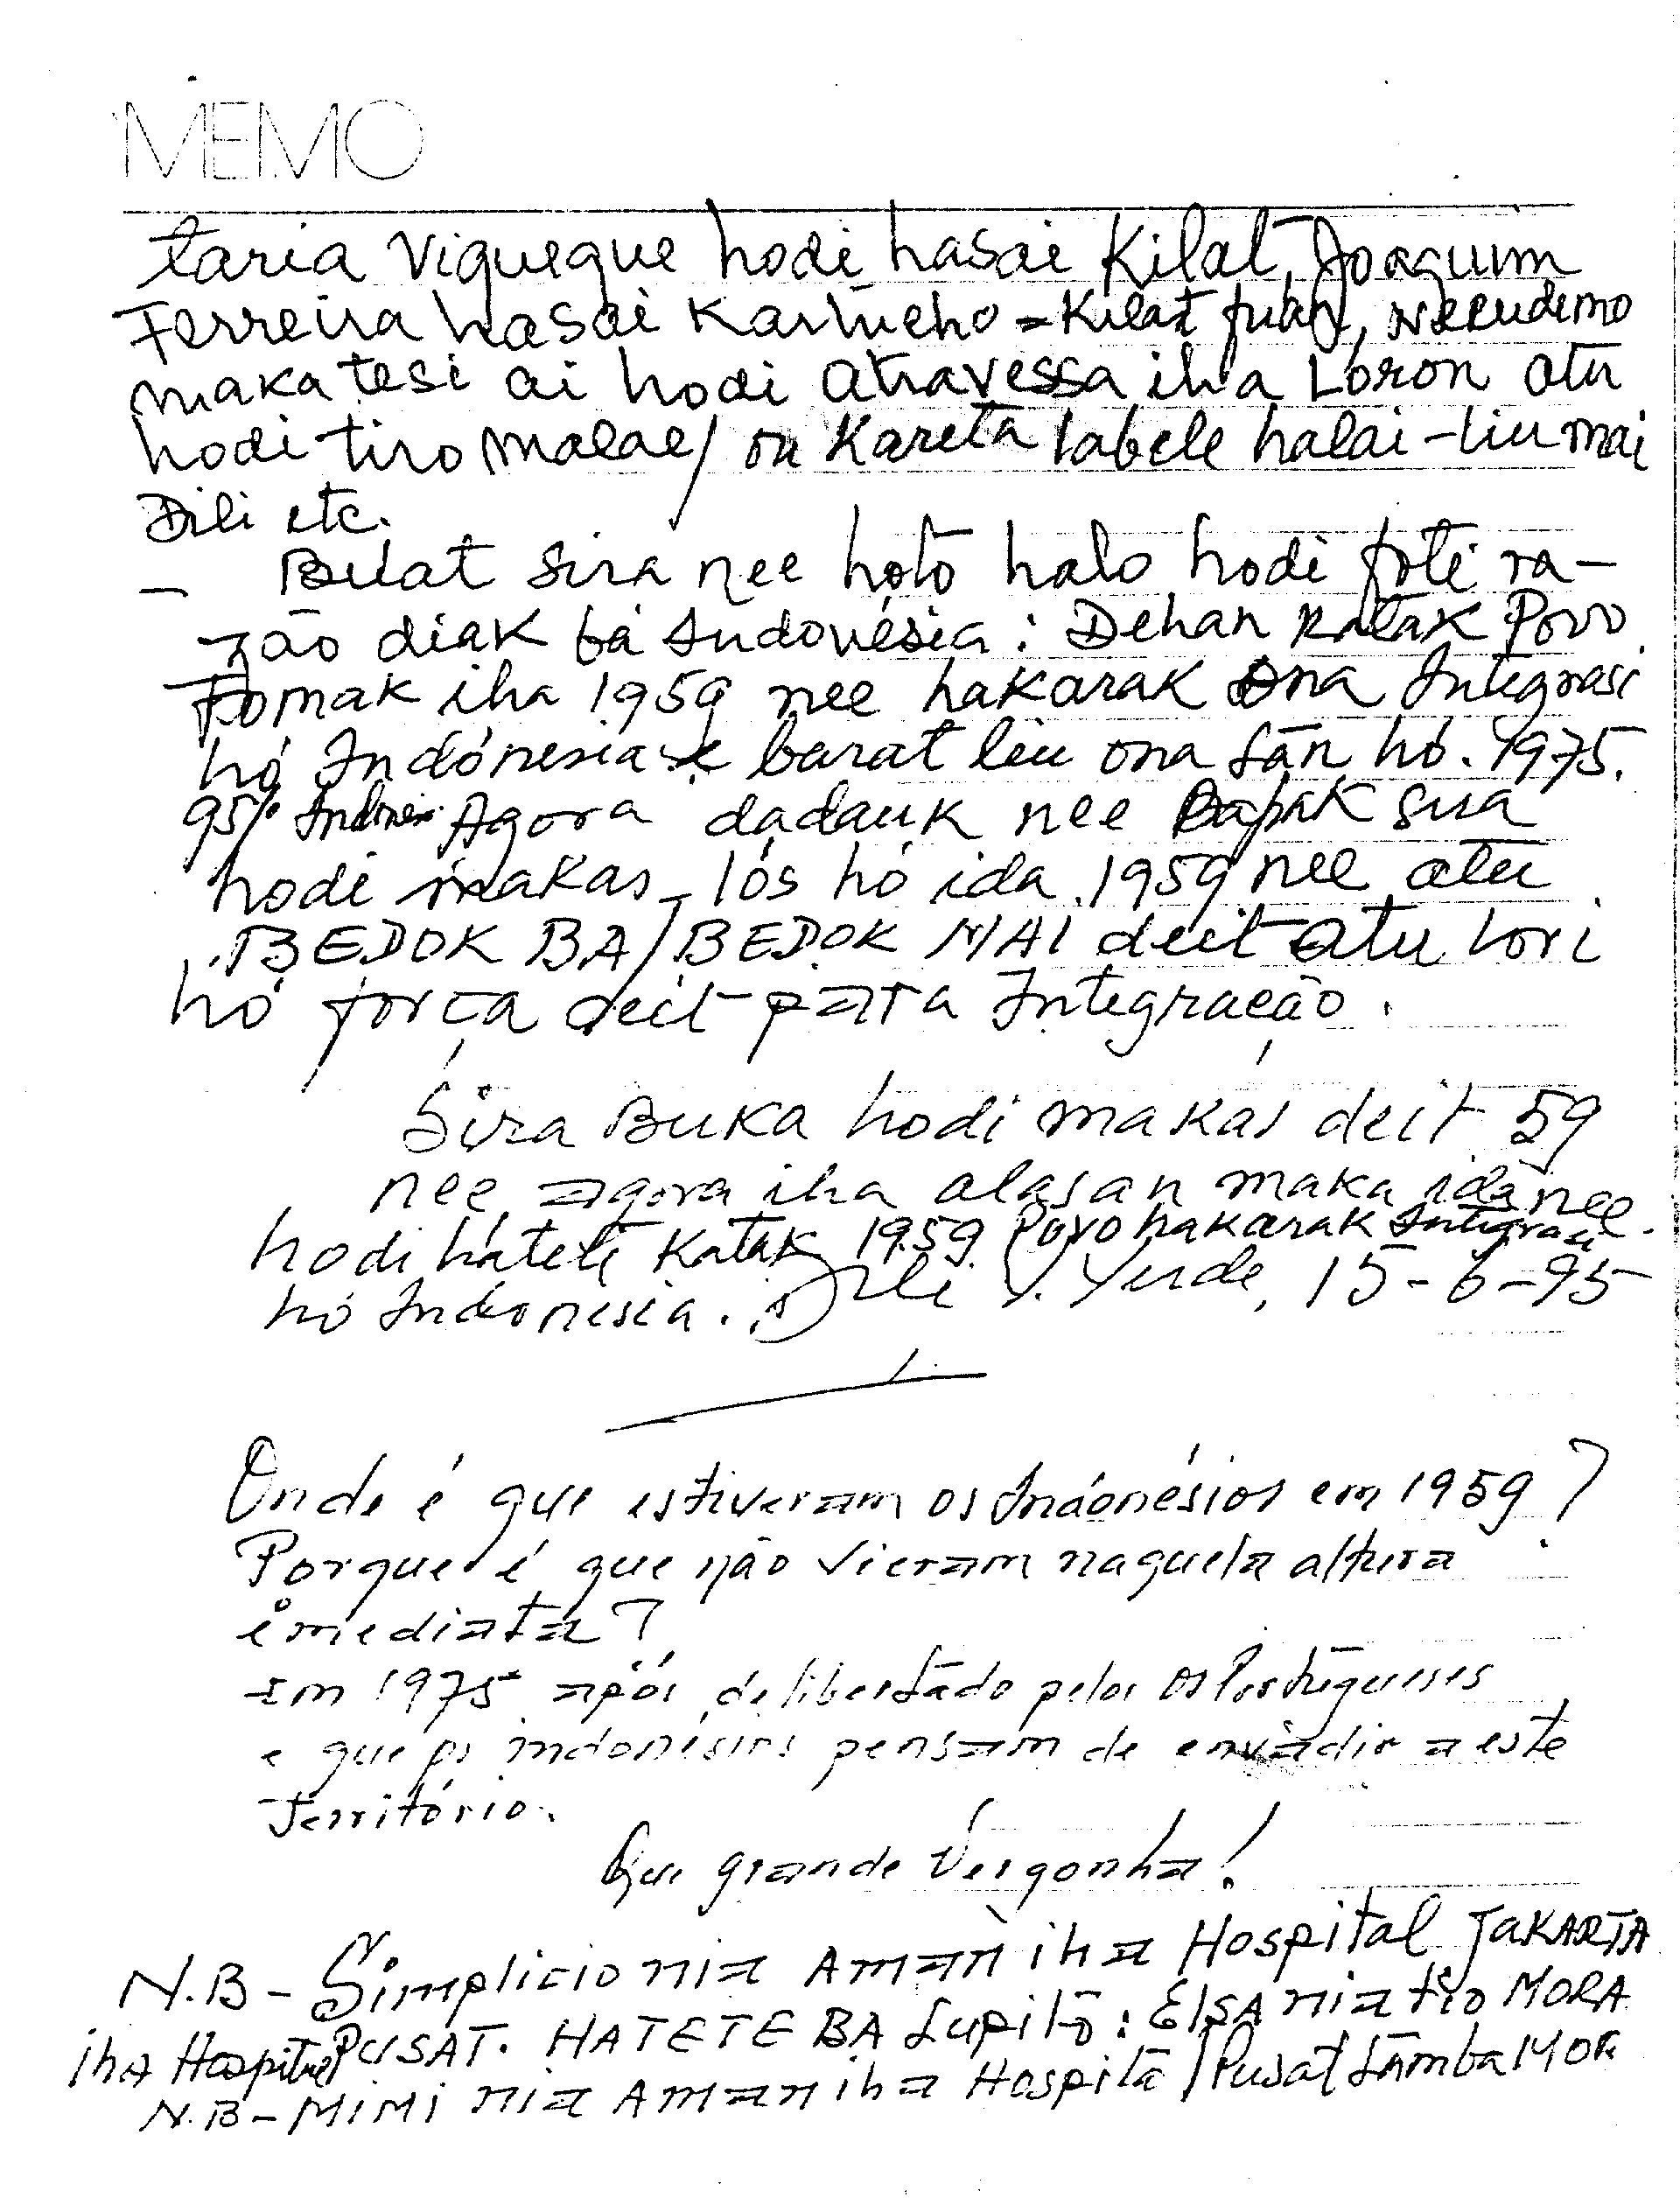 MEMO
taria Viqueque hodi hasai Kilat, Joaquim
Ferreira hasai Kartucho = Kilat fuan,
maka tesi ai hodi atravessa iha Loron atu
hodi tiro malae/ ou Kareta labele halai-liu mai
Dili etc.
- Buat sira nee hotо halo hodi foti ra-
zão diak ba Indonésia: Dehan Katak Povo
Tomak iha 1959 nee hakarak Ona Integrasi
hó Indónesia barat liu ona hó. 1975.
95% Agora dadauk nee Bapak sira
hodi makas lós hó ida 1959 nee atu
BEDOK BA/BEDOK MAI deit atu lori
hó força deit para Integração.
Sira Buka hodi makas deit 59
nee agora iha alasan maka ida nee
hodi hatete Katak 1959 Povo hakarak Integrasi
hó Indonesia. Dili V. Verde, 15-6-95
Onde é que estiveram os Indonésios em 1959?
Porque é que não vieram naquela altura
imediata?
Em 1975 após delibertado pelos os Portugueses
e que os indonésios pensam de envadir a este
Território.
Que grande Vergonha!
N.B - Simplicio nia Aman iha Hospital JAKARTA
ihA Hospital PUSAT. HATETE BA Lupitó: ElSA nia tio MORA
N.B - MIMI nia Aman iha Hospitá/Pusat Lamba